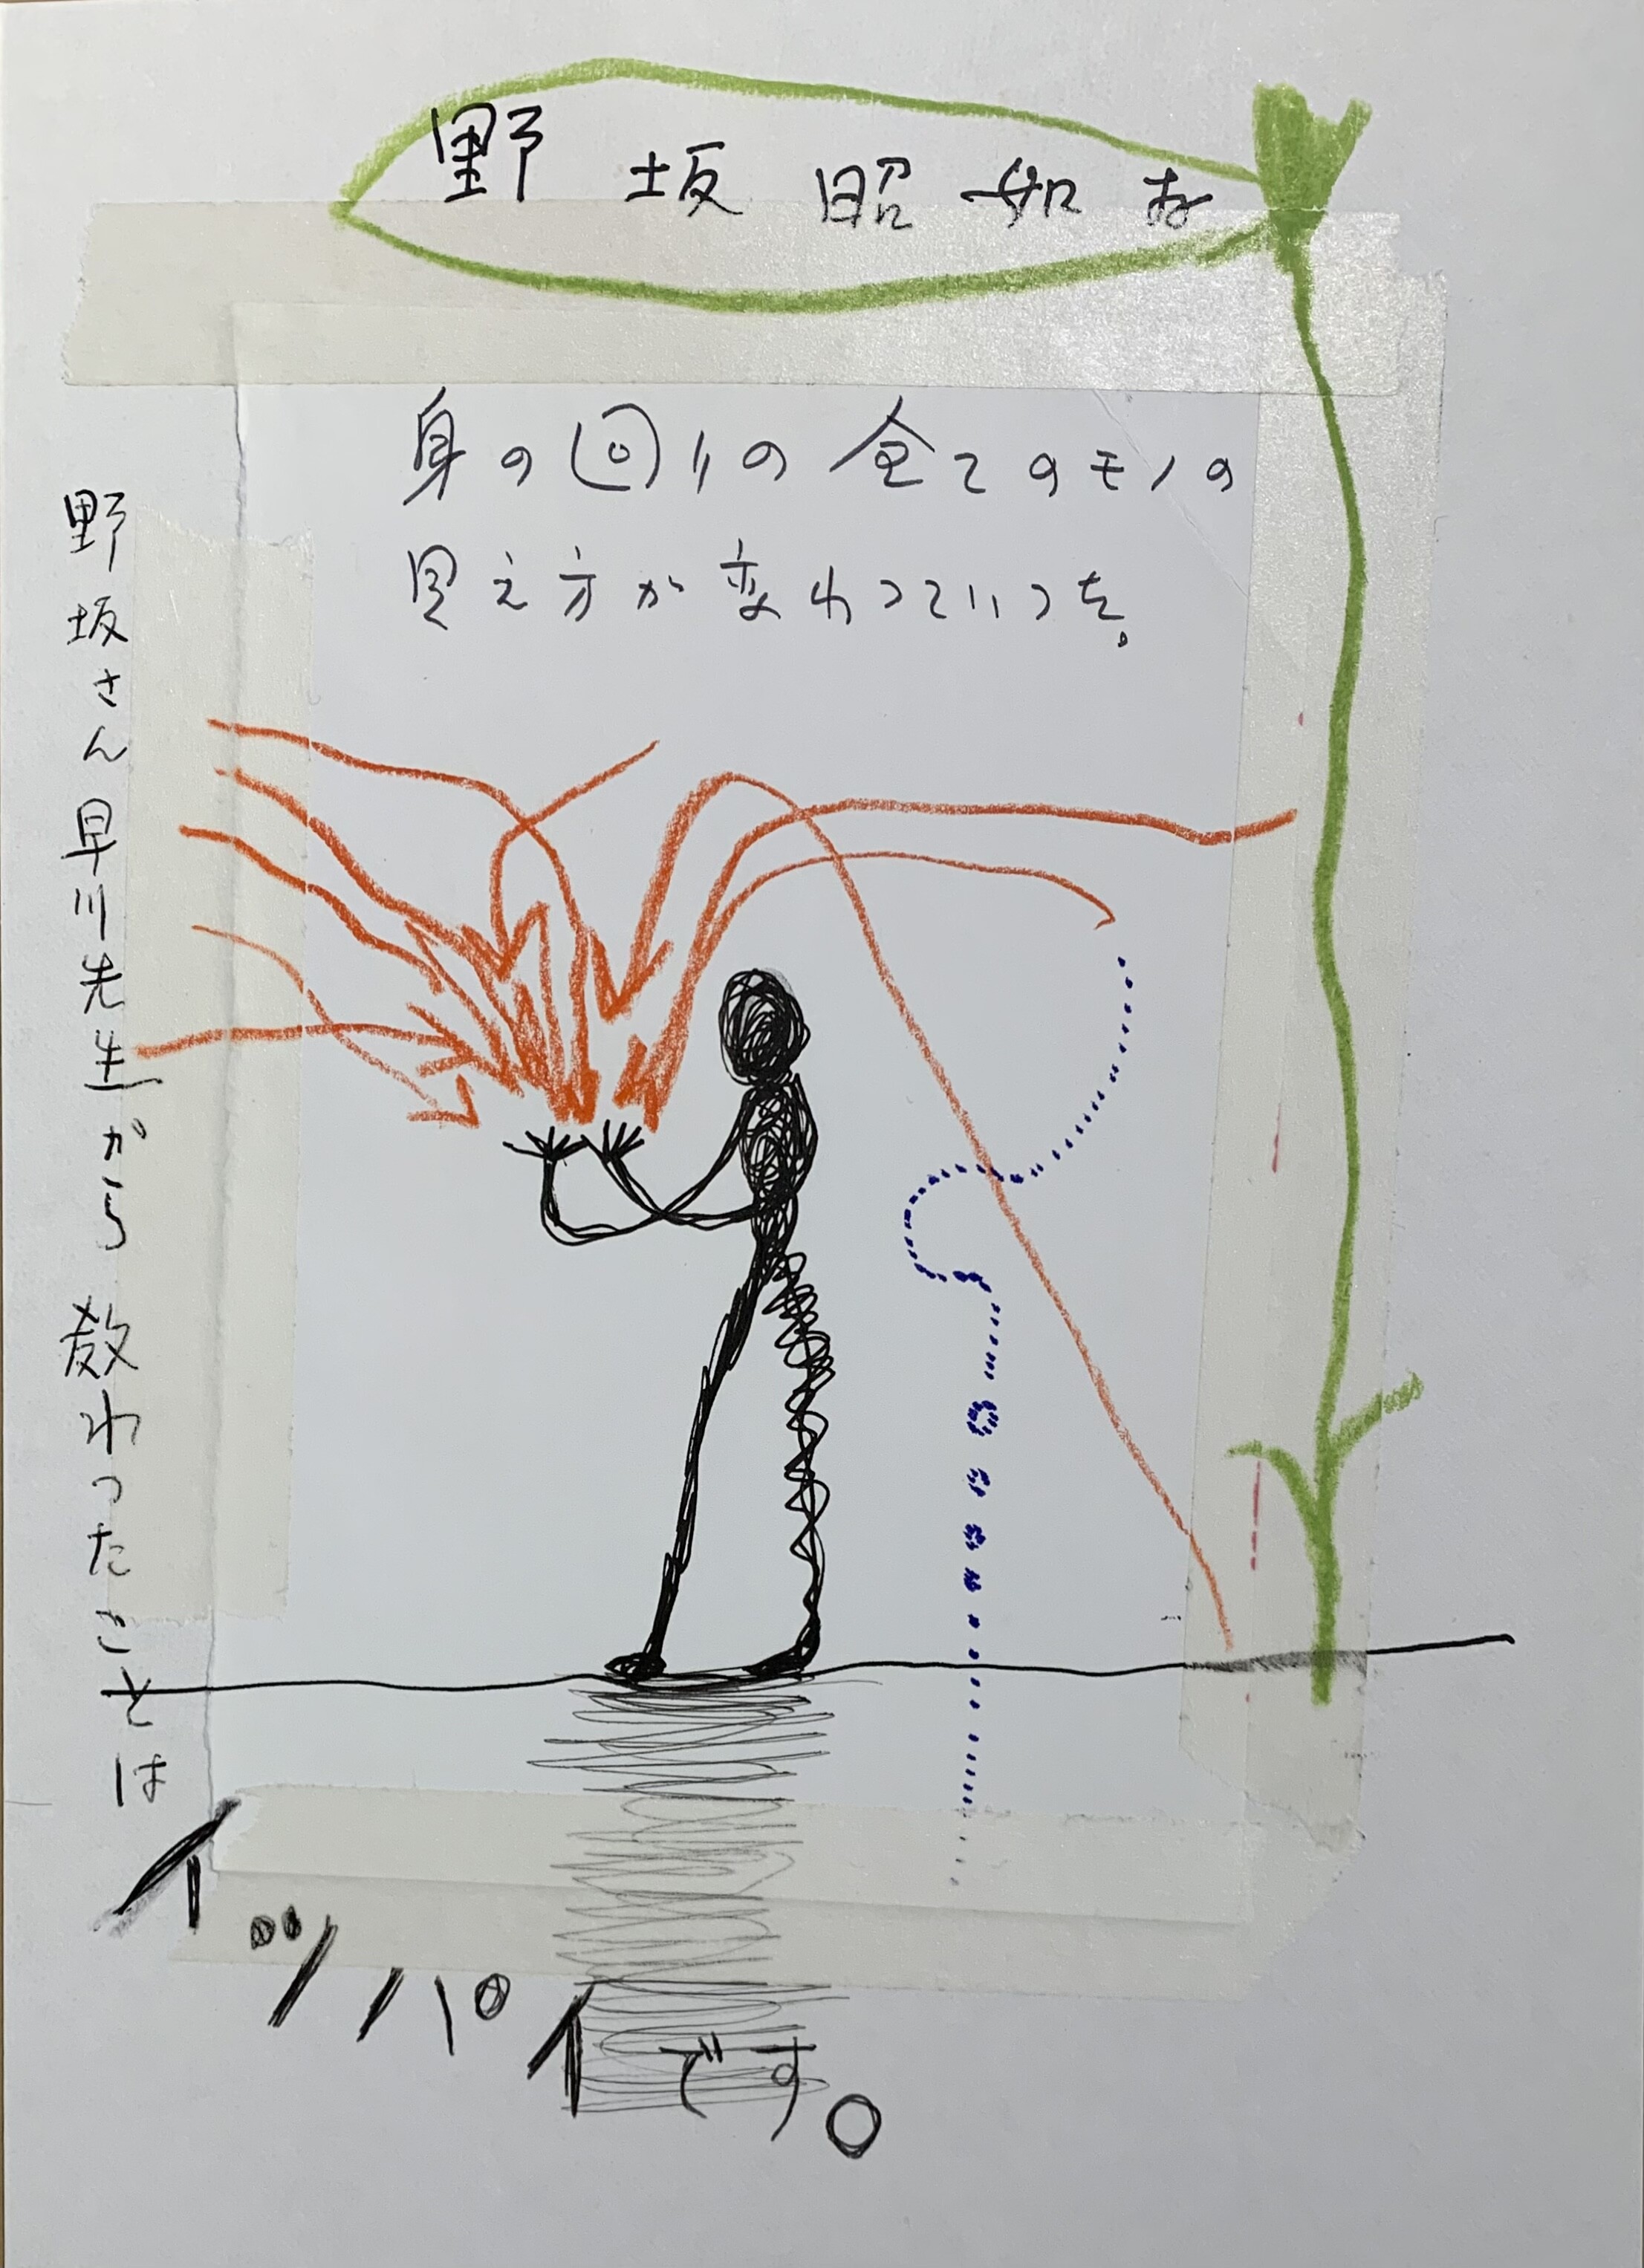 野坂昭如さ
身の回りの全てのモノの
見え方が変わっていった。
野坂さん早川先生から教わったことは
イッパイです。